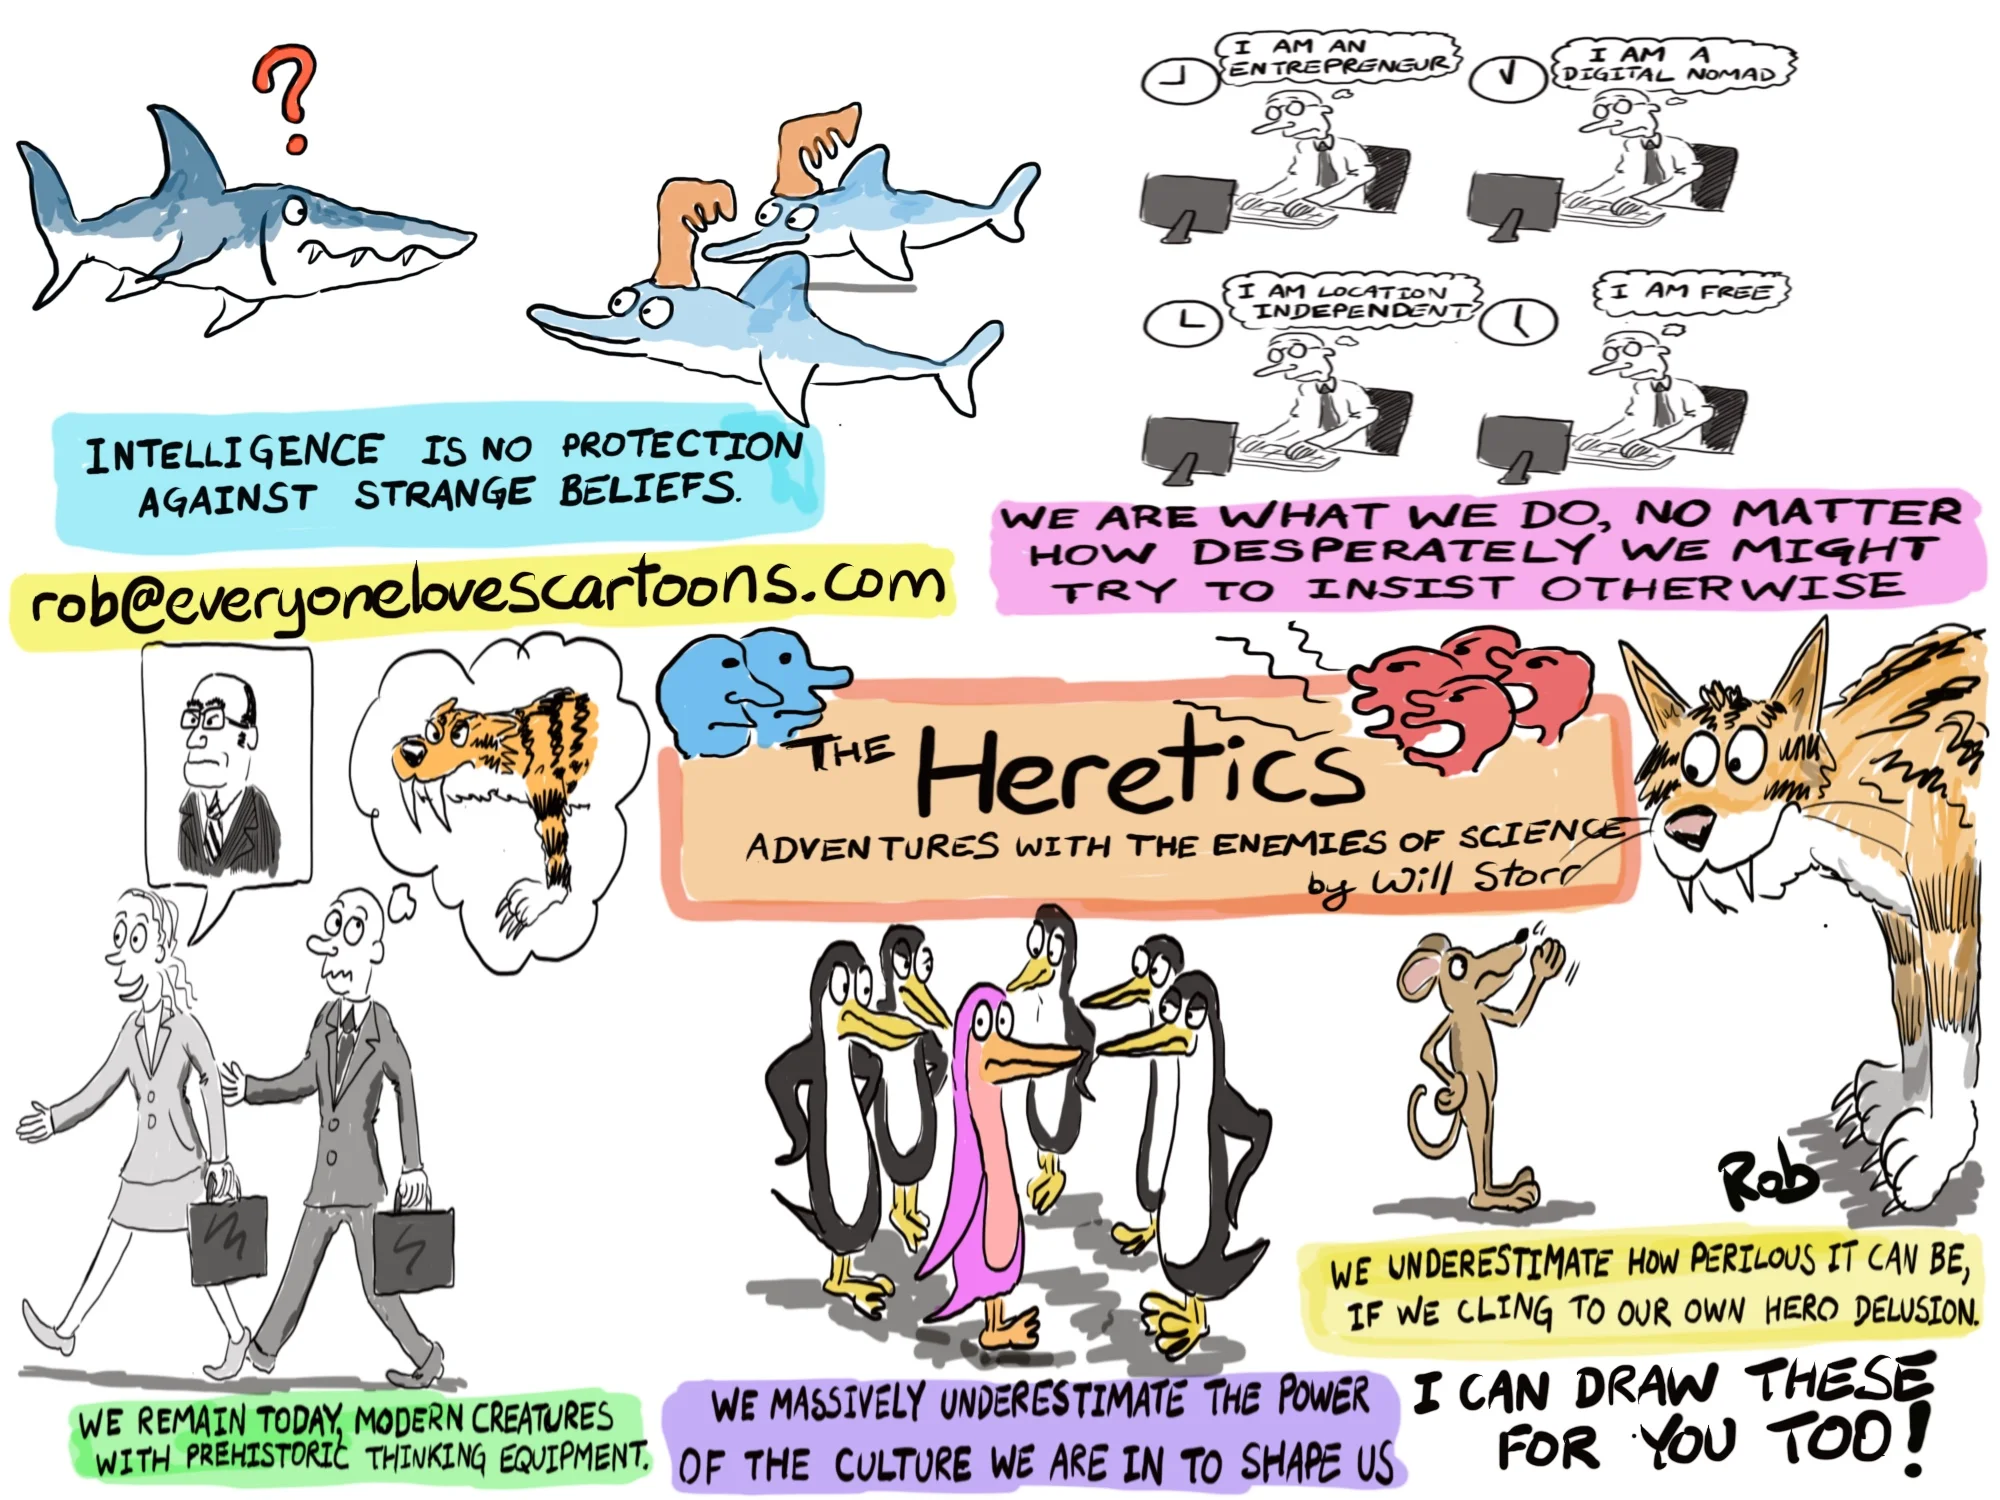 ?
I AM AN
ENTREPRENEUR
I AM A
DIGITAL NOMAD
I AM LOCATION
INDEPENDENT
I AM FREE
INTELLIGENCE IS NO PROTECTION
AGAINST STRANGE BELIEFS.
WE ARE WHAT WE DO, NO MATTER
HOW DESPERATELY WE MIGHT
TRY TO INSIST OTHERWISE
rob@everyonelovescartoons.com
THE Heretics
ADVENTURES WITH THE ENEMIES OF SCIENCE
by Will Storr
Rob
WE UNDERESTIMATE HOW PERILOUS IT CAN BE,
IF WE CLING TO OUR OWN HERO DELUSION.
WE REMAIN TODAY, MODERN CREATURES
WITH PREHISTORIC THINKING EQUIPMENT.
WE MASSIVELY UNDERESTIMATE THE POWER
OF THE CULTURE WE ARE IN TO SHAPE US
I CAN DRAW THESE
FOR YOU TOO!